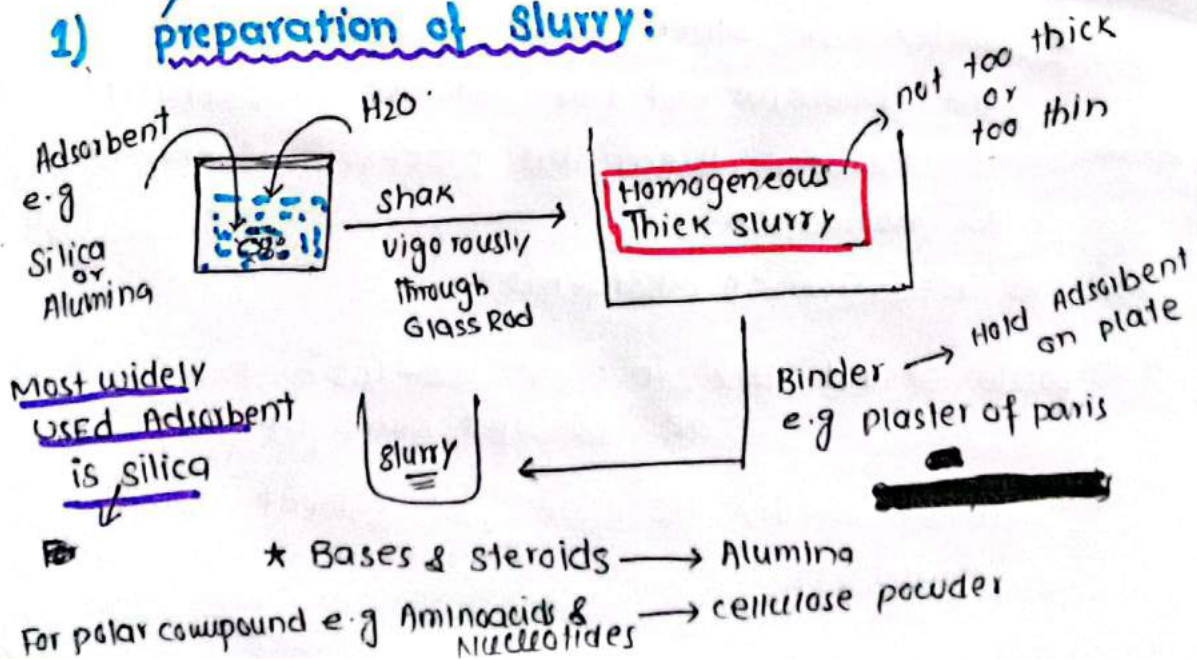 1) preparation of slurry:
Adsorbent
e.g
Silica
or
Alumina
H2O
shak
vigorously
through
Glass Rod
Homogeneous
Thick slurry
not too thick
or
too thin
Binder → Hold Adsorbent
on plate
e.g plaster of paris
slurry
Most widely
USEd Adsorbent
is silica
* Bases & steroids → Alumina
For polar compound e.g Aminoacids &
Nucleotides → cellulose powder